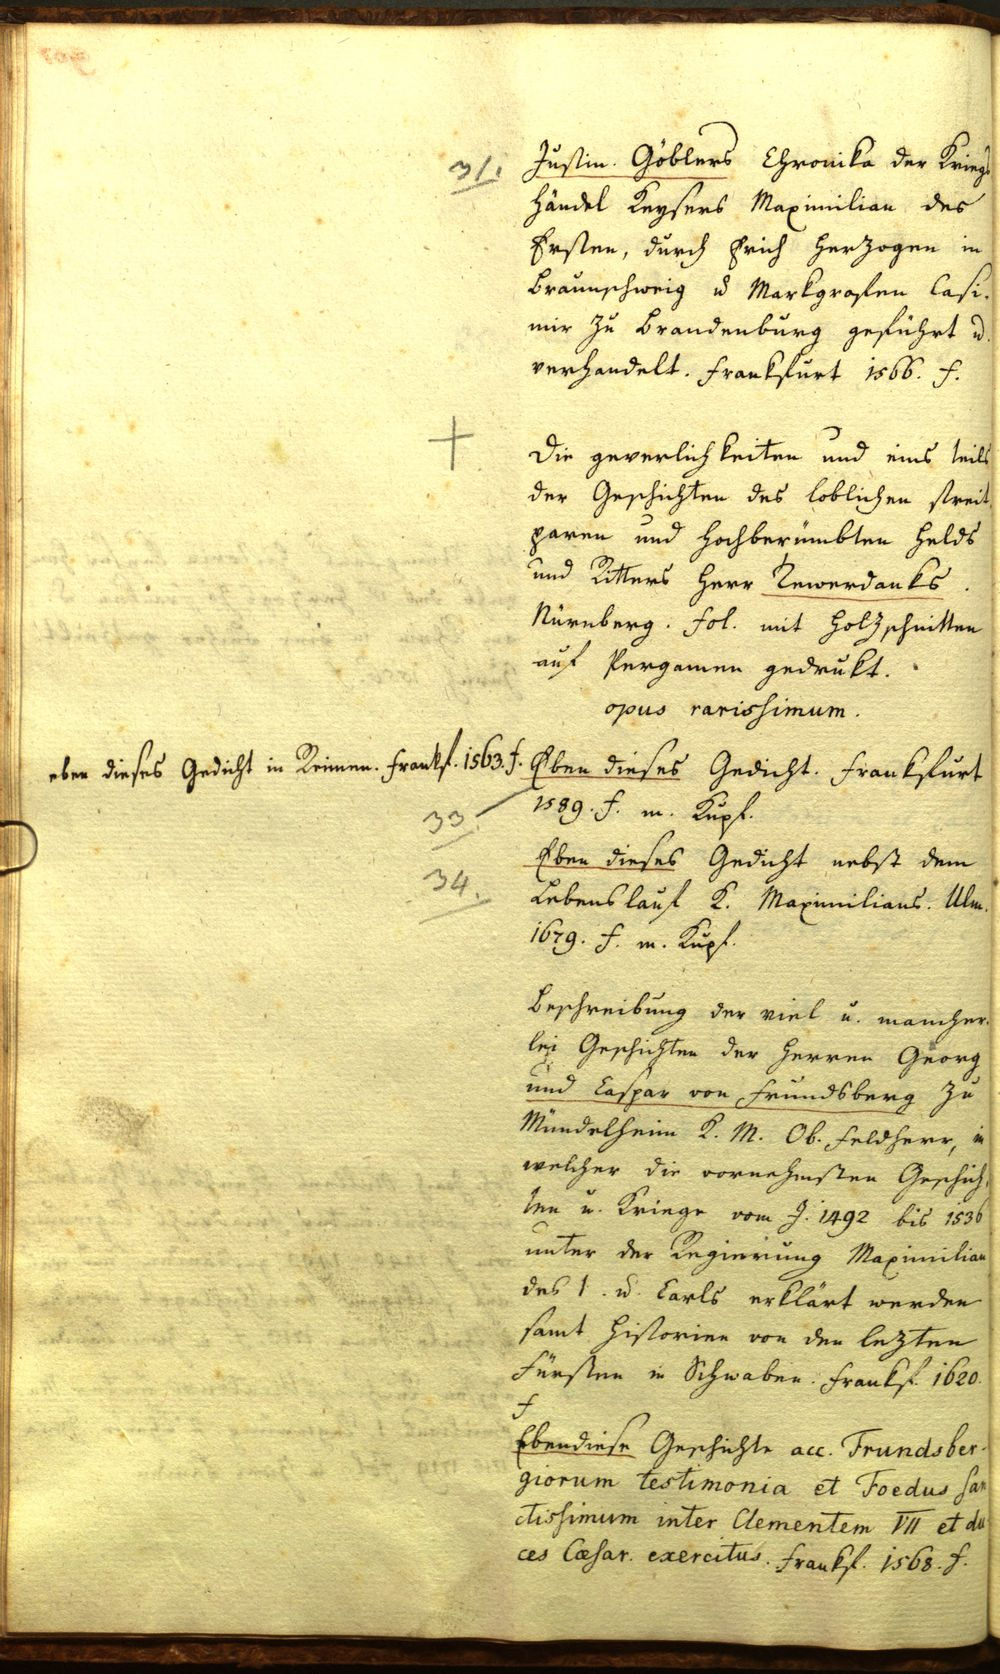 31.
Justin. Göblers Chronika der Kriegs
Händel Keysers Maximilian des
Ersten, durch Erich Herzogen in
Braunschweig u Markgrafen Casi-
mir zu Brandenburg geführt u.
verhandelt. Frankfurt 1566. f.
+
Die geverlichkeiten und eins teils
der Geschichten des loblichen streit
paren und hochberümbten Helds
und Ritters Herr Tewerdanks.
Nürnberg. fol. mit Holzschnitten
auf Pergamen gedrukt.
opus rarissimum.
eben dieses Gedicht in Reimen. Frankf. 1563. f.
Eben dieses Gedicht. Frankfurt
1589. f. m. Kupf.
33.
Eben dieses Gedicht nebst dem
34.
Lebenslauf K. Maximilians. Ulm.
1679. f. m. Kupf.
Beschreibung der viel u. mancher-
lei Geschichten der Herren Georg
und Caspar von Frundsberg zu
Mündelheim K. M. Ob. Feldherr, in
welcher die vornehmsten Geschich-
ten u. Kriege vom J. 1492 bis 1536
unter der Regierung Maximilian
des 1. u. Carls erklärt werden
samt Historien von den lezten
Fürsten in Schwaben. Frankf. 1620.
f
Ebendiese Geschichte acc. Frundsber-
giorum testimonia et Foedus san
ctissimum inter Clementem VII et du
ces Cæsar. exercitus. Frankf. 1568. f.